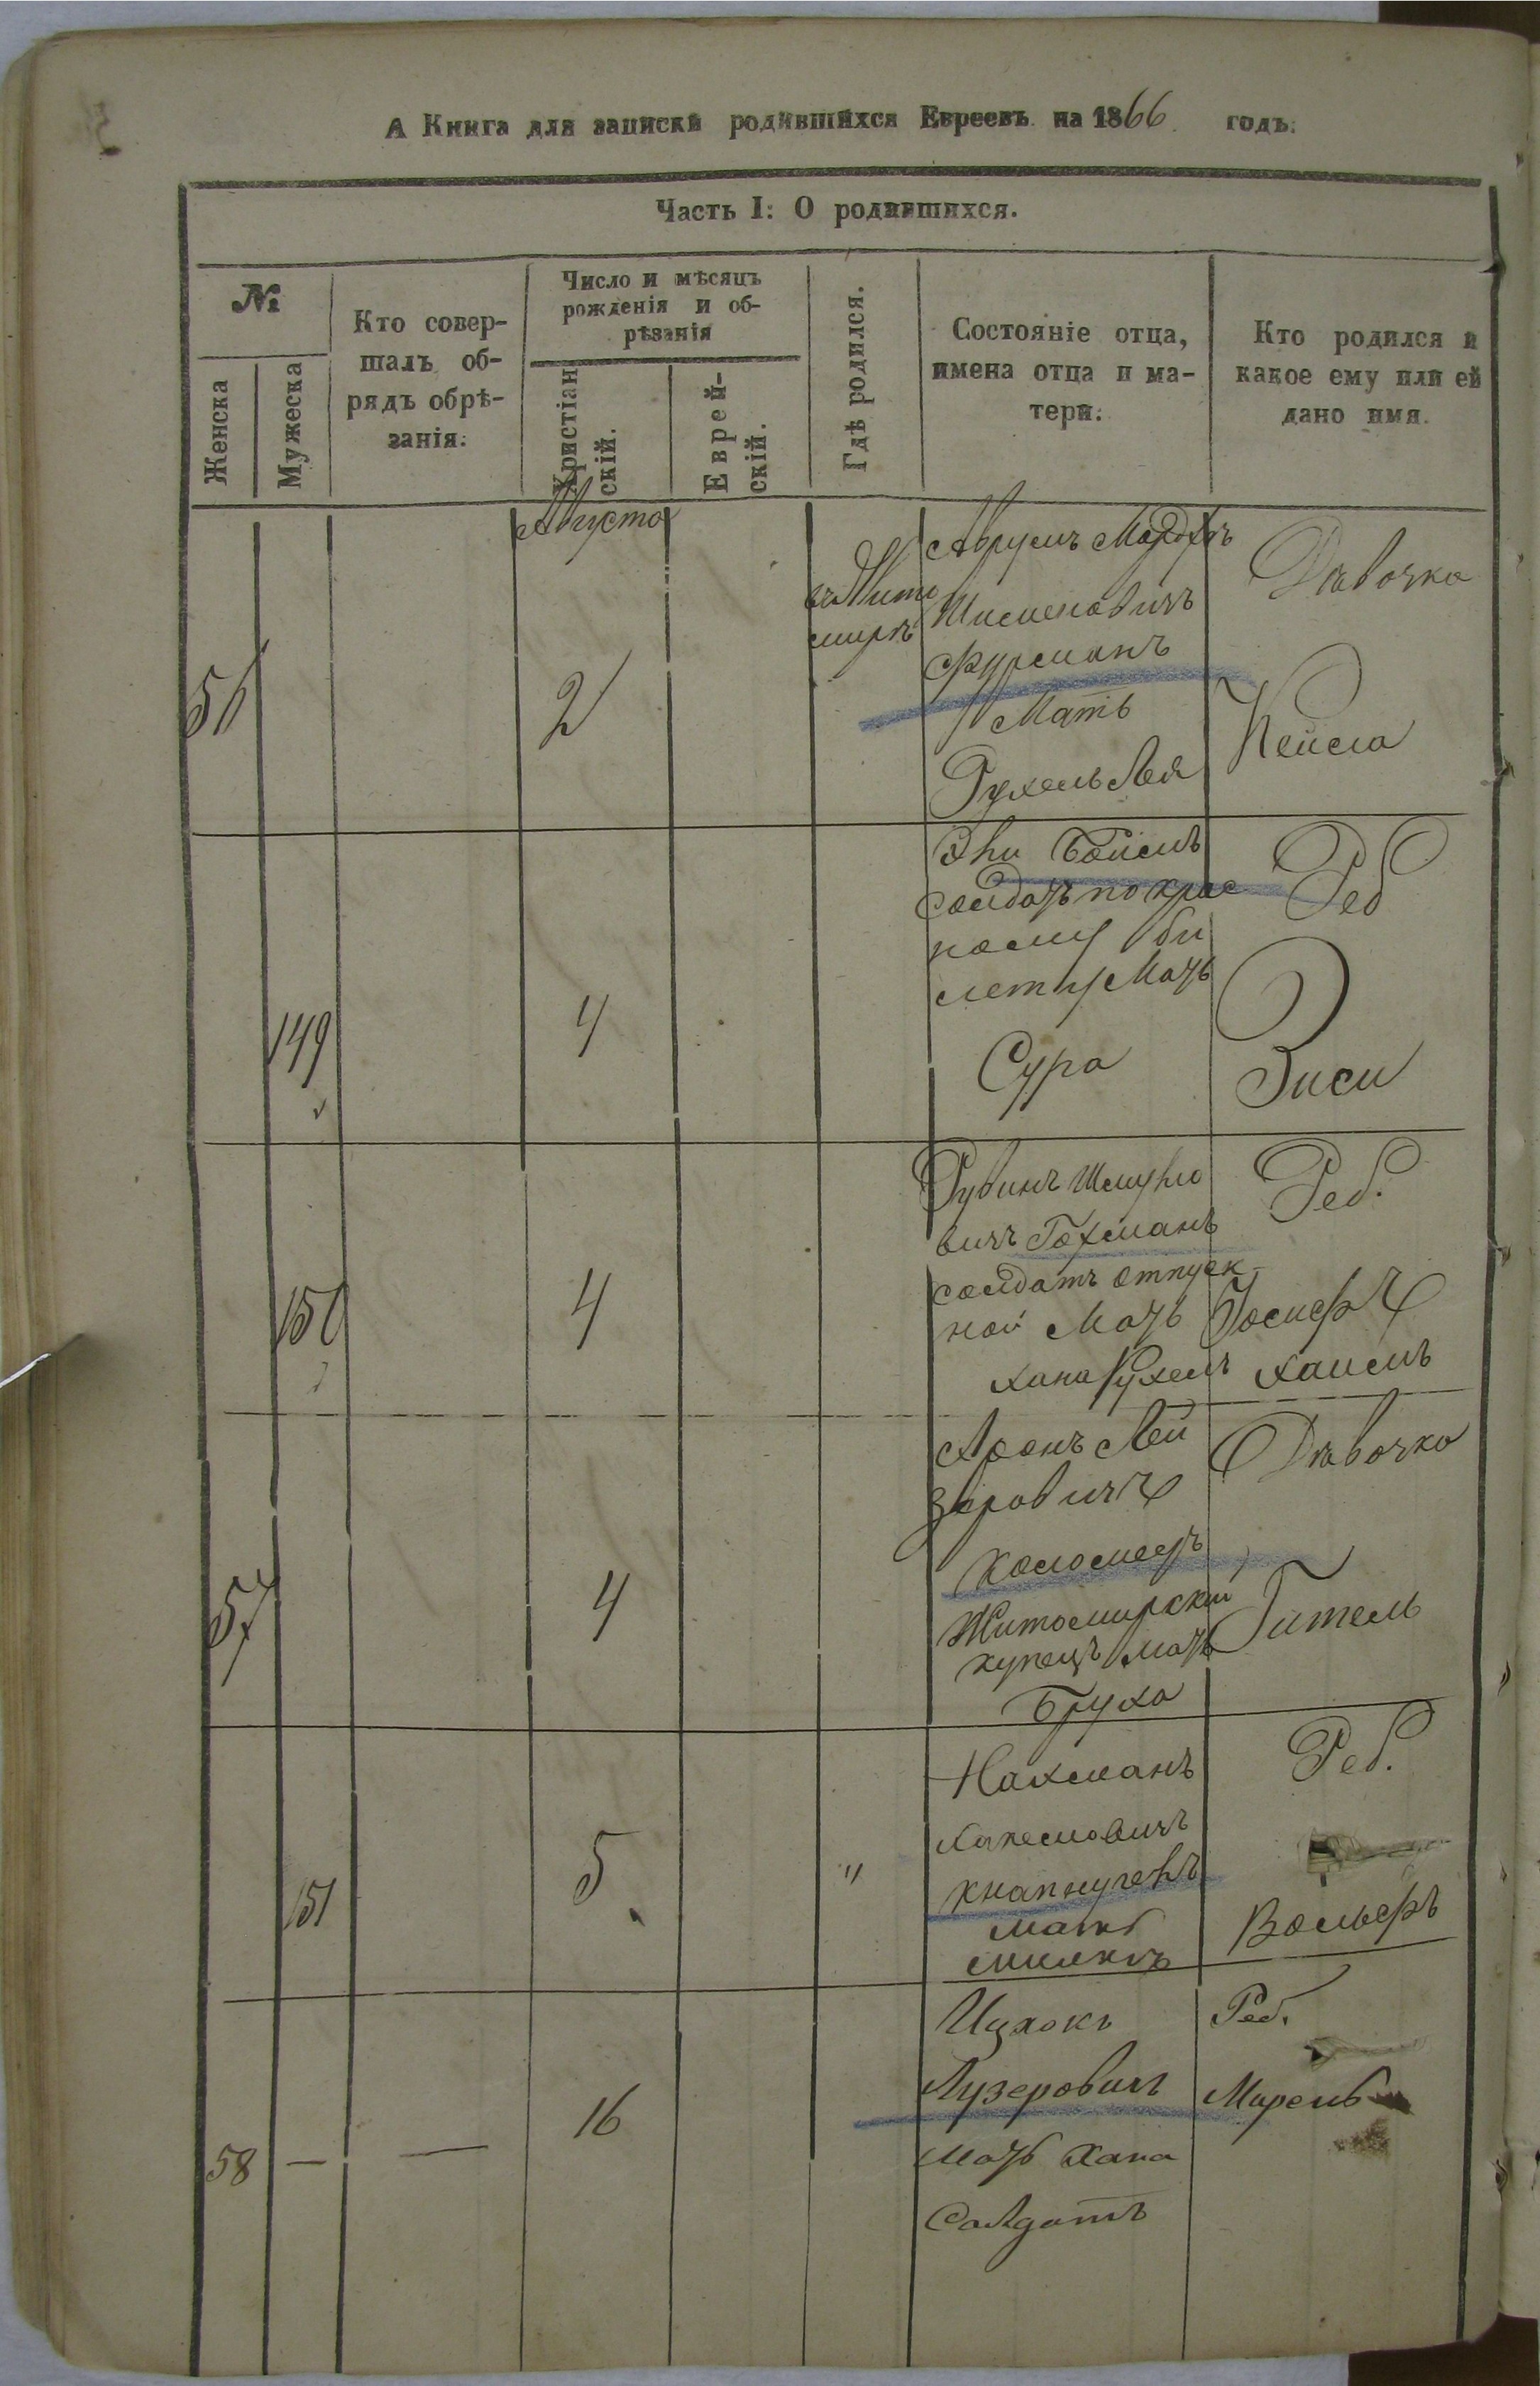 А Книга для записки родившихся Евреевъ на 1866 годъ.
Часть I: О родившихся.
№
Женска
Мужеска
Кто совер-
шалъ об-
рядъ обрѣ-
занія.
Число и мѣсяцъ
рожденія и об-
рѣзанія
Христіан
скій.
Еврей-
скій.
Гдѣ родился.
Состояніе отца,
имена отца и ма-
тери.
Кто родился и
какое ему или ей
дано имя.
Августа
56
2
въ Жито
мирѣ
Аврумъ
Фурманъ
Мать
Рухель Лея
Дѣвочка
Нейсла
149
4
солдатъ по крас
ному би
лету Мать
Сура
Реб
Зиси
150
4
Рувинъ Шмуйло
вичъ Гохманъ
солдатъ отпуск-
ной Мать
хана Рухель
Реб.
Іосифъ
хаимъ
57
4
Аронъ Лей
зеровичъ
Коломеецъ
Житомирскій
купецъ мать
Бруха
Дѣвочка
Гитель
151
5
"
Нахманъ
мать
Реб.
Вольфъ
58 — —
16
Ицхокъ
Лузеровичъ
Мать Хана
Солдатъ
Реб.